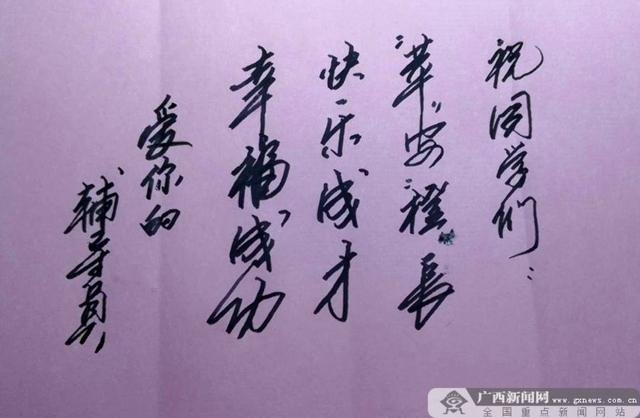 祝同学们：
"苹"安"橙"长
快乐成才
幸福成功
爱你的
辅导员
广西新闻网 www.gxnews.com.cn
全国重点新闻网站